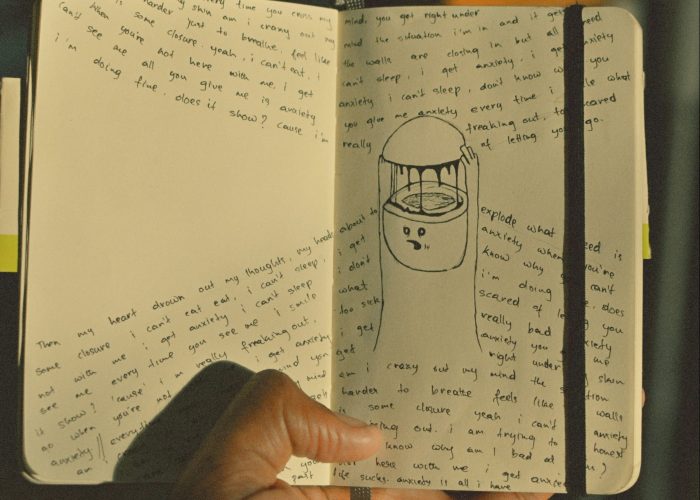 every time you cross my
my skin am i crazy out my
harder just to breathe. feel like
is some closure. yeah, i can't eat, i
when you're not here with me. i get
can't see me all you give me is anxiety
i'm doing fine. does it show? cause i'm
Then my heart drown out my thoughts, my heads
some closure i can't eat eat, i can't sleep,
not with me i get anxiety i can't sleep
see me every time you see me i smile
it show? 'cause' i'm really freaking out.
so when you're not i get anxiety
anxiety // everyth mind you
am i mind
mind, you get right under
mind the situation i'm in and it get
the walls are closing in but all need
can't sleep, i get anxiety, i get anxiety
anxiety i can't sleep, don't know why you
you give me anxiety every time i le what
really freaking out, to scared
of letting you go.
about to explode what ed is
i get anxiety when you're
i don't know why can't
what i'm doing e, does
too sick scared of le you
i get really bad
get anxiety you me
right under my
am i crazy out my mind the s
harder to breathe feels like walls
is some closure yeah i can't anxiety
ing out. i am trying to honest
know why am I bad at ?
her here with me i get anxie
life sucks. anxiety is all i have